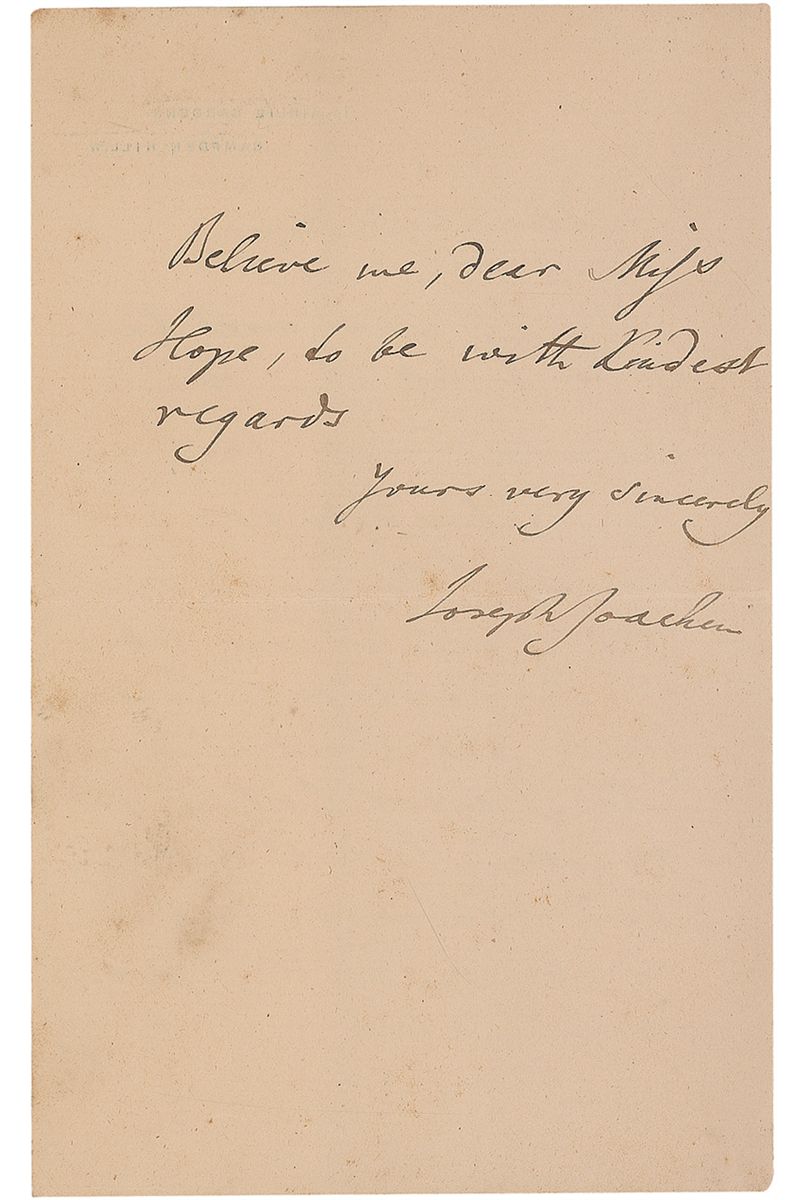 Believe me, dear Miss
Hope, to be with kindest
regards
Yours very sincerely
Joseph Joachim